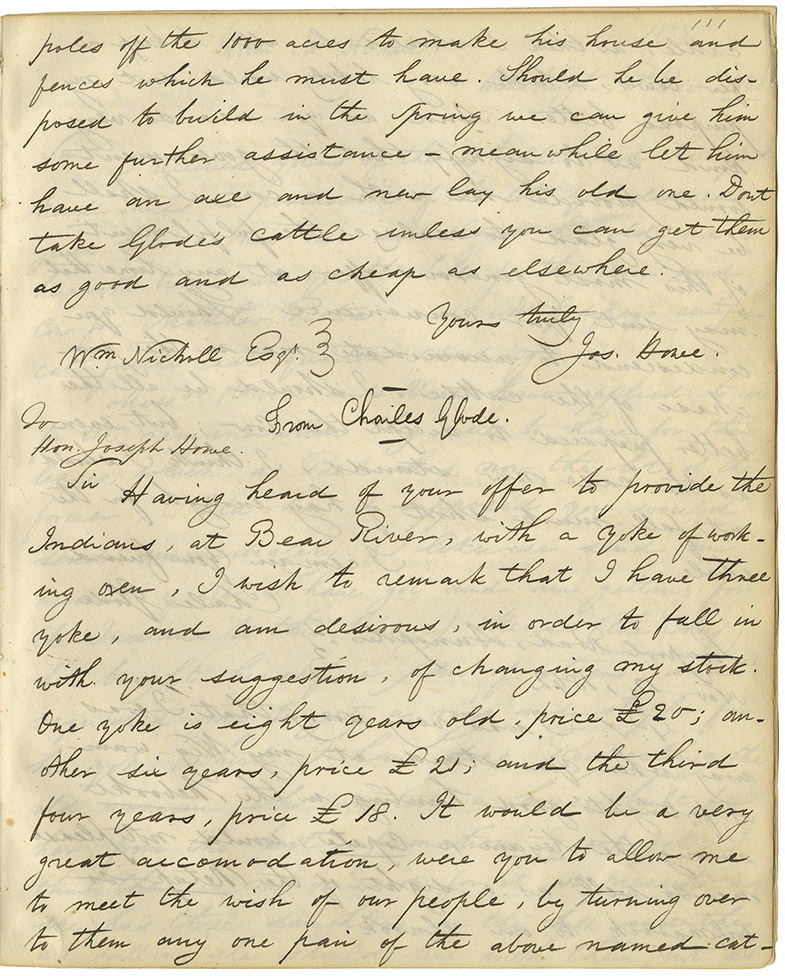 111
poles off the 1000 acres to make his house and
fences which he must have. Should he be dis-
posed to build in the spring we can give him
some further assistance - meanwhile let him
have an axe and new lay his old one. Dont
take Glode's cattle unless you can get them
as good and as cheap as elsewhere.
Yours truly
Wm Nicholl Esqr. } Jos. Howe.
From Charles Glode.
To
Hon. Joseph Howe.
Sir Having heard of your offer to provide the
Indians, at Bear River, with a yoke of work-
ing oxen, I wish to remark that I have three
yoke, and am desirous, in order to fall in
with your suggestion, of changing my stock.
One yoke is eight years old, price £20; an-
other six years, price £21; and the third
four years, price £18. It would be a very
great accomodation, were you to allow me
to meet the wish of our people, by turning over
to them any one pair of the above named cat-